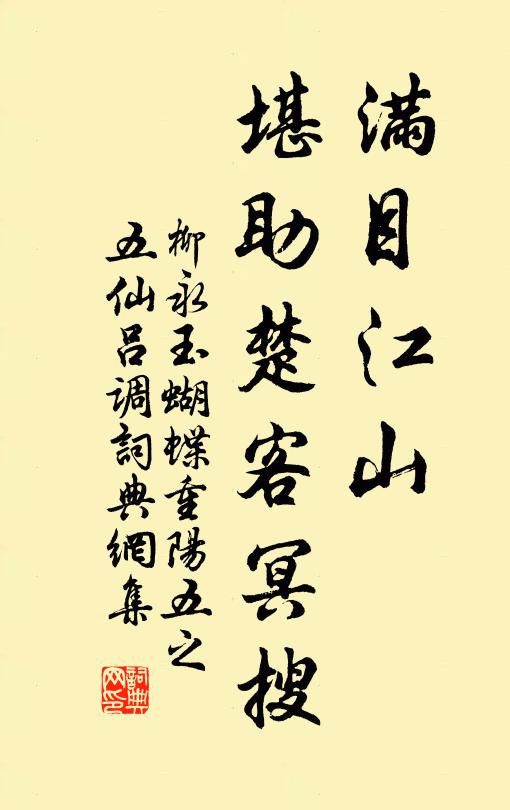 滿目江山
堪助楚客冥搜
柳永玉蝴蝶重陽五之
五仙呂調詞典網集
詞典
网印